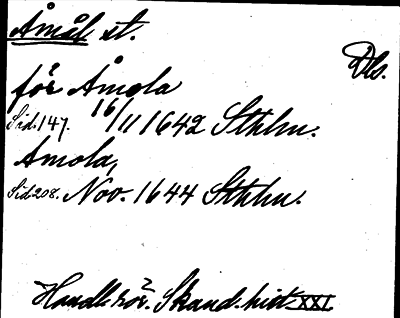 Åmål st.
Dls.
för Åmola
Sid. 147. 16/11 1642 Sthlm.
Amola,
Sid. 208. Nov. 1644 Sthlm.
Handl. rör. Skand. hist. XXI